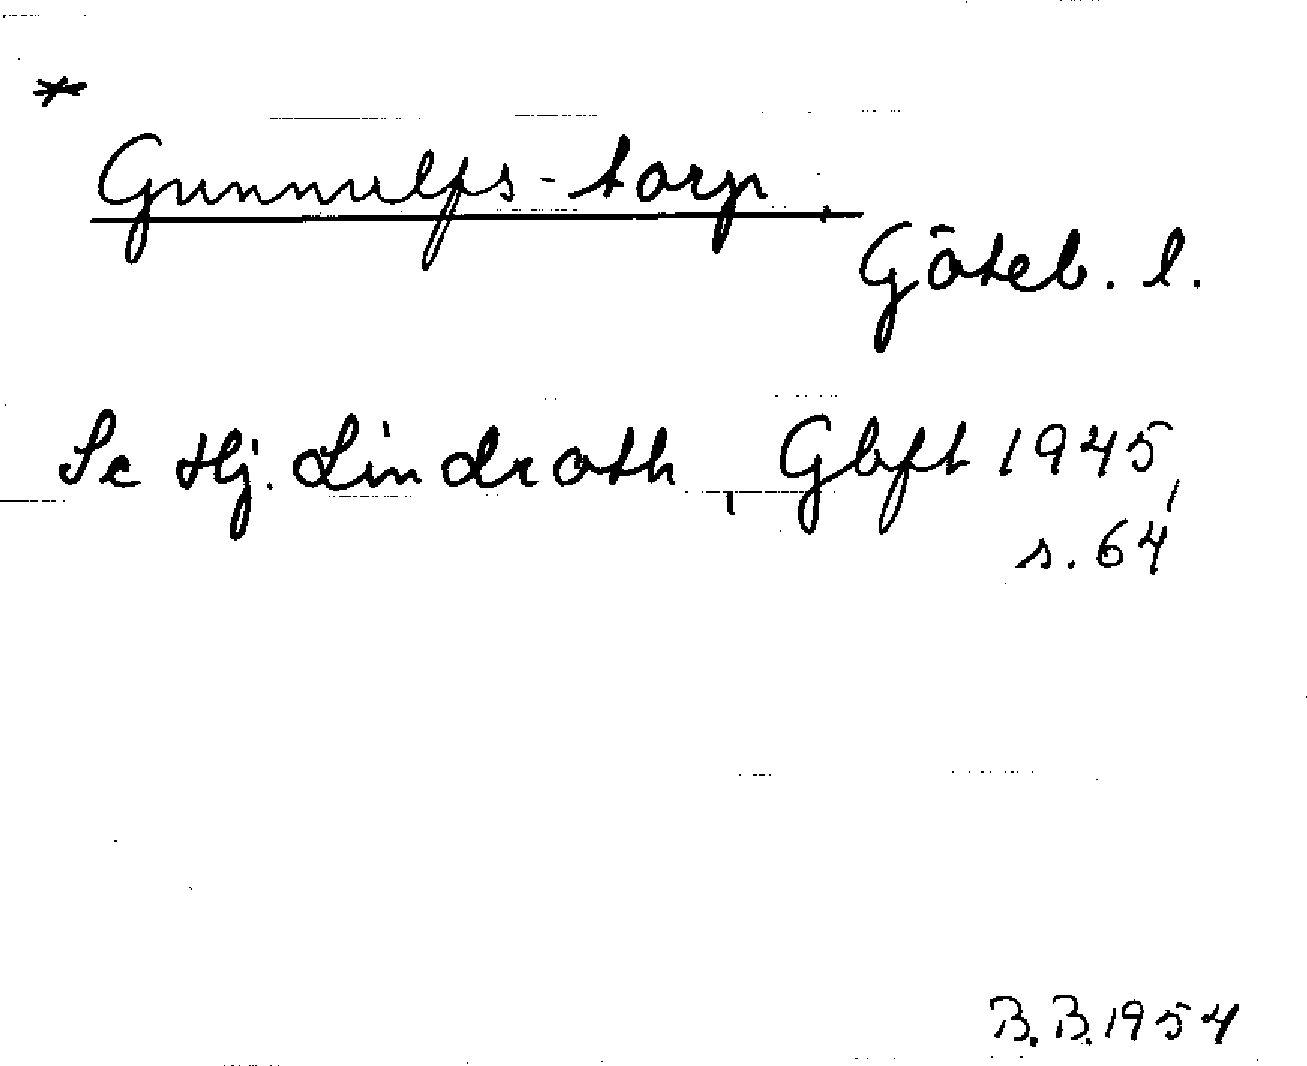 *
Gunnulfs-torp,
Göteb. l.
Se Hj. Lindroth, Gbft 1945,
s. 64
B.B. 1954